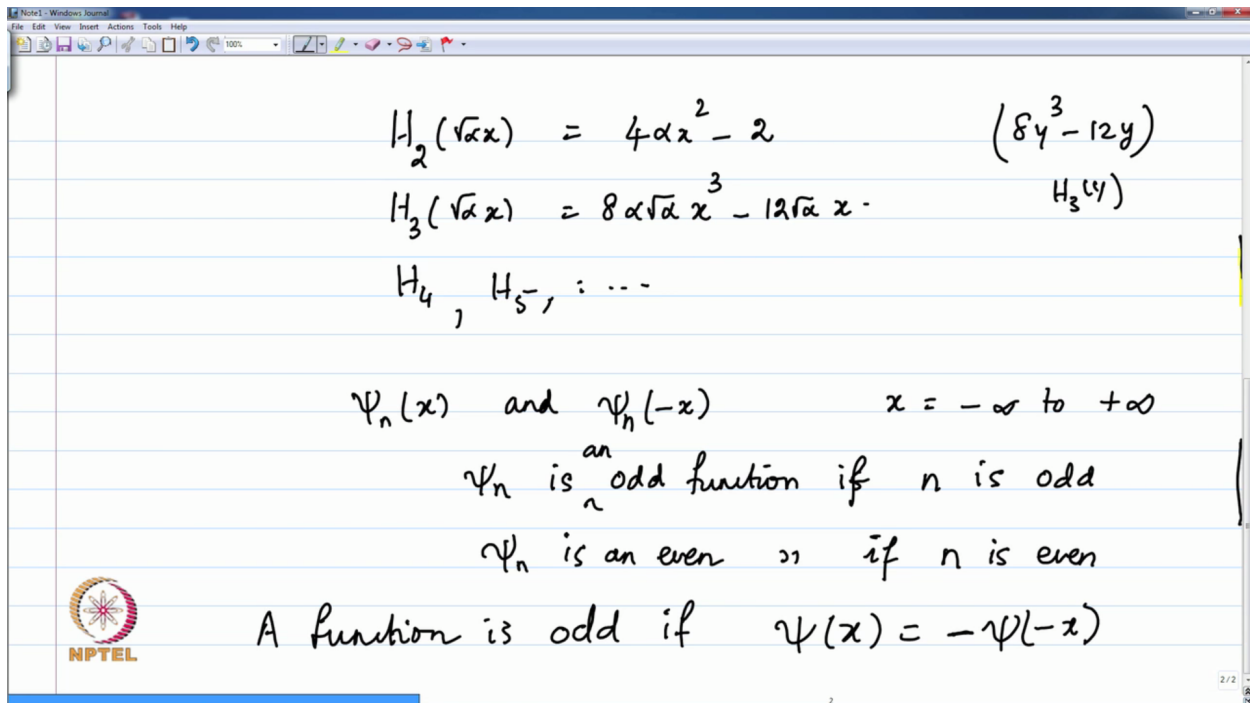 Note1 - Windows Journal
File Edit View Insert Actions Tools Help
100%
H₂(√α x) = 4αx² - 2 (8y³ - 12y)
H₃(√α x) = 8α√α x³ - 12√α x. H₃(y)
H₄, H₅, : ...
ψₙ(x) and ψₙ(-x) x = -∞ to +∞
ψₙ is an odd function if n is odd
ψₙ is an even " if n is even
A function is odd if ψ(x) = -ψ(-x)
NPTEL
2/2
2